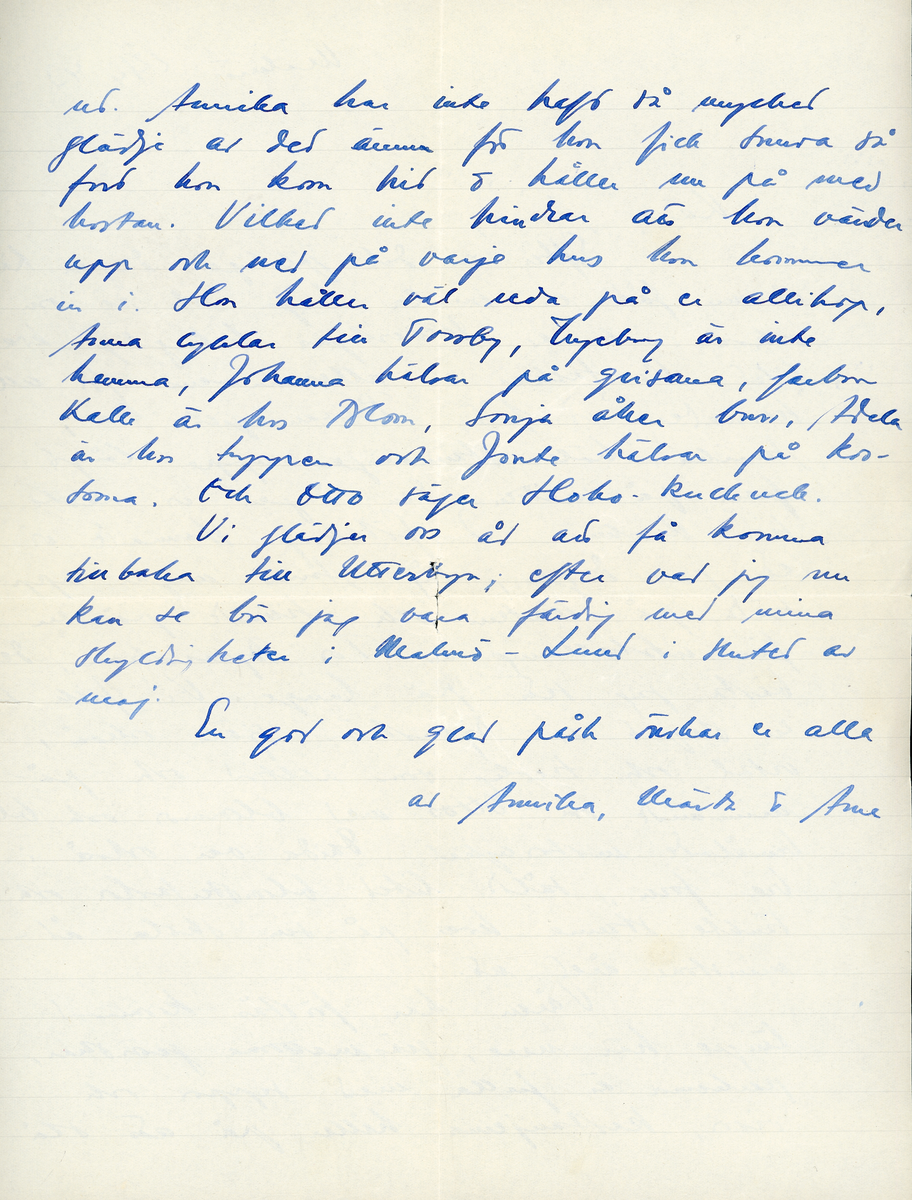 ut. Annika har inte haft så mycket
glädje av det ännu för hon fick snuva så
fort hon kom hit o håller nu på med
hostan. Vilket inte hindrar att hon vänder
upp och ned på varje hus hon kommer
in i. Hon håller väl reda på er allihop,
Anna cyklar till Torsby, Ingeborg är inte
hemma, Johanna hälsar på grisarna, farbror
Kalle är hos Blom, Sonja åker buss, Adela
är hos tuppen och Jonte hälsar på kos-
sorna. Och Otto säger Hoho-kuckuck.
Vi glädjer oss åt att få komma
tillbaka till Utterbyn; efter vad jag nu
kan se bör jag vara färdig med mina
skyldigheter i Malmö - Lund i slutet av
maj.
En god och glad påsk önskar er alla
av Annika, Märta o Arne